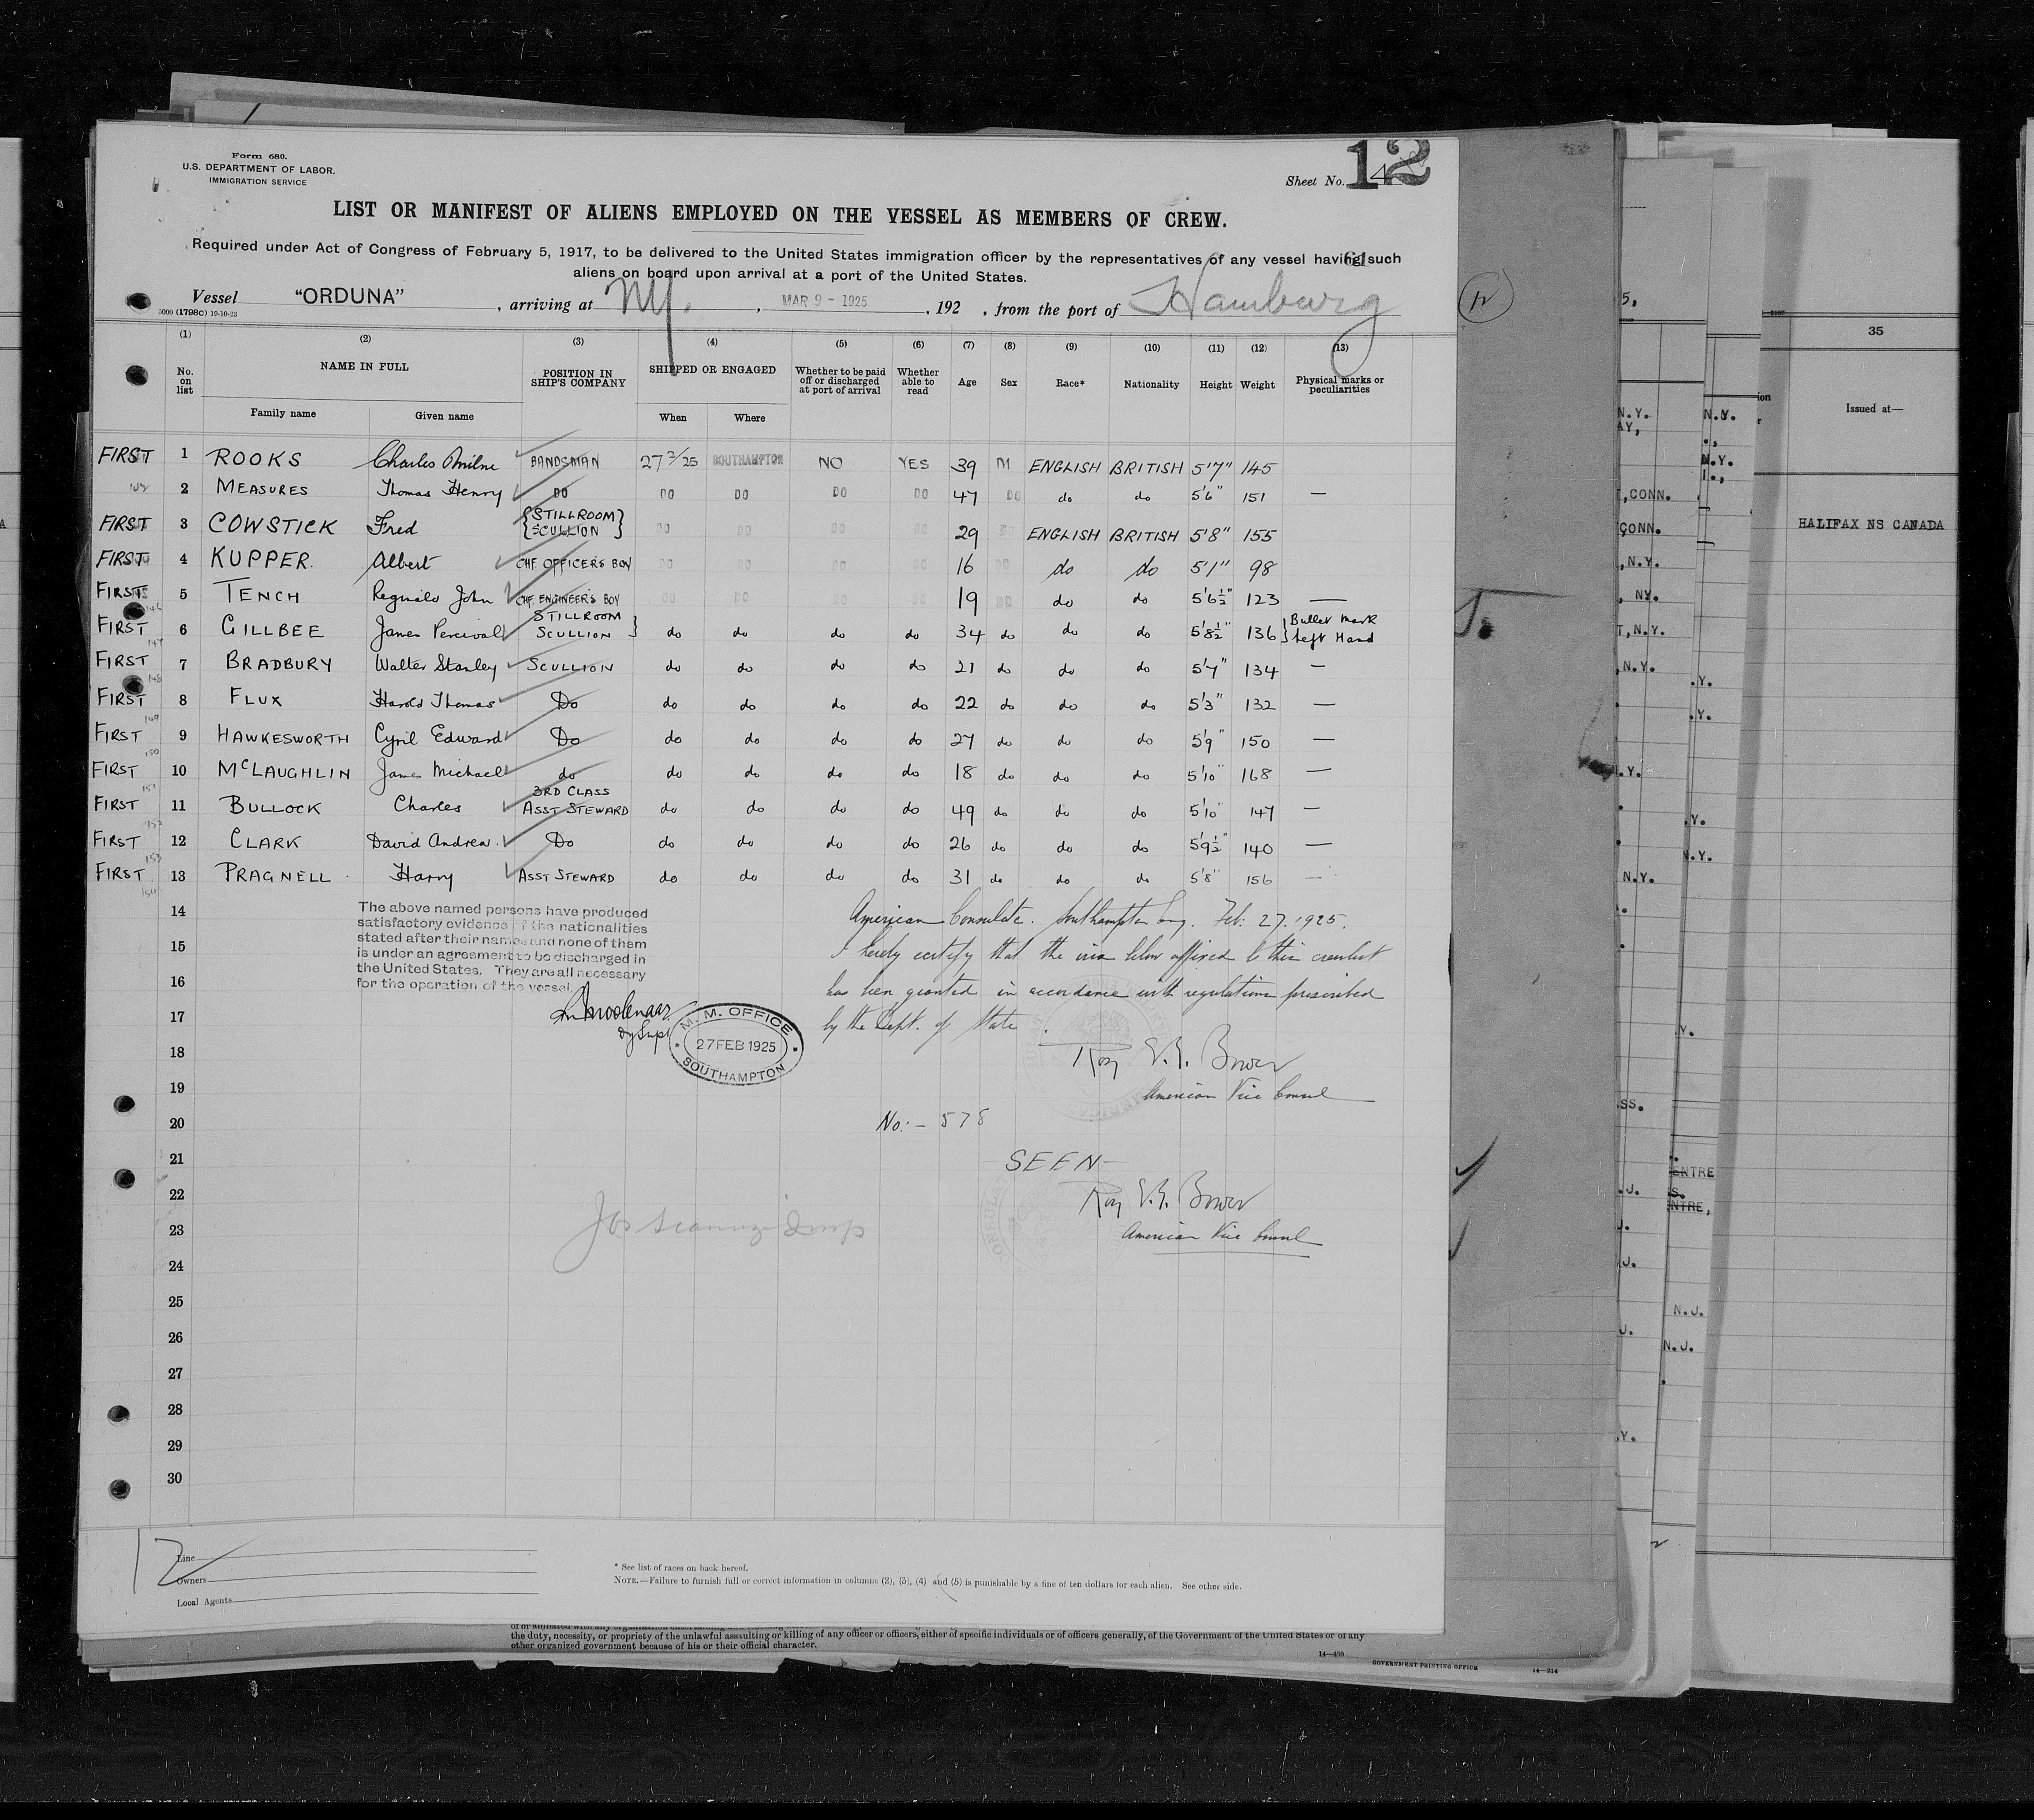 Form 680.
U.S. DEPARTMENT OF LABOR.
IMMIGRATION SERVICE
Sheet No. 12
4
LIST OR MANIFEST OF ALIENS EMPLOYED ON THE VESSEL AS MEMBERS OF CREW.
Required under Act of Congress of February 5, 1917, to be delivered to the United States immigration officer by the representatives of any vessel having such
aliens on board upon arrival at a port of the United States.
Vessel "ORDUNA", arriving at NY., MAR 9 - 1925, 192 , from the port of Hamburg
5000 (1798c) 19-10-23
(1) (2) (3) (4) (5) (6) (7) (8) (9) (10) (11) (12) (13)
No. on list NAME IN FULL POSITION IN SHIP'S COMPANY SHIPPED OR ENGAGED Whether to be paid off or discharged at port of arrival Whether able to read Age Sex Race* Nationality Height Weight Physical marks or peculiarities
Family name Given name When Where
FIRST 1 ROOKS Charles Milne BANDSMAN 27 2/25 SOUTHAMPTON NO YES 39 M ENGLISH BRITISH 5'7" 145
2 MEASURES Thomas Henry DO DO DO DO DO 47 DO do do 5'6" 151 —
FIRST 3 COWSTICK Fred {STILLROOM SCULLION} DO DO DO DO 29 DO ENGLISH BRITISH 5'8" 155
FIRST 4 KUPPER. Albert CHF OFFICER'S BOY DO DO DO DO 16 DO do do 5'1" 98
FIRST 5 TENCH Reginald John CHF ENGINEER'S BOY DO DO DO DO 19 DO do do 5'6½" 123 —
FIRST 6 GILLBEE James Percival STILLROOM SCULLION } do do do do 34 do do do 5'8½" 136 } Bullet Mark Left Hand
FIRST 7 BRADBURY Walter Stanley SCULLION do do do do 21 do do do 5'7" 134 —
FIRST 8 FLUX Harold Thomas Do do do do do 22 do do do 5'3" 132 —
FIRST 9 HAWKESWORTH Cyril Edward Do do do do do 27 do do do 5'9" 150 —
FIRST 10 McLAUGHLIN James Michael do do do do do 18 do do do 5'10" 168 —
FIRST 11 BULLOCK Charles 3RD CLASS ASST STEWARD do do do do 49 do do do 5'10" 147 —
FIRST 12 CLARK David Andrew. Do do do do do 26 do do do 5'9½" 140 —
FIRST 13 PRAGNELL Harry ASST STEWARD do do do do 31 do do do 5'8" 156 —
14
15
16
17
18
19
20
21
22
23
24
25
26
27
28
29
30
The above named persons have produced
satisfactory evidence of the nationalities
stated after their names and none of them
is under an agreement to be discharged in
the United States. They are all necessary
for the operation of the vessel.
M. M. OFFICE
27 FEB 1925
SOUTHAMPTON
American Consulate. Southampton Eng. Feb. 27. 1925.
I hereby certify that the visa below affixed to this crewlist
has been granted in accordance with regulations prescribed
by the Dept. of State.
Roy E. B. Bower
American Vice Consul
No:- 578
SEEN
Roy E. B. Bower
American Vice Consul
12
Line
Owners
Local Agents
* See list of races on back hereof.
NOTE.—Failure to furnish full or correct information in columns (2), (3), (4) and (5) is punishable by a fine of ten dollars for each alien. See other side.
the duty, necessity, or propriety of the unlawful assaulting or killing of any officer or officers, either of specific individuals or of officers generally, of the Government of the United States or of any
other organized government because of his or their official character.
14—430
GOVERNMENT PRINTING OFFICE
14—214
35
Issued at—
HALIFAX NS CANADA